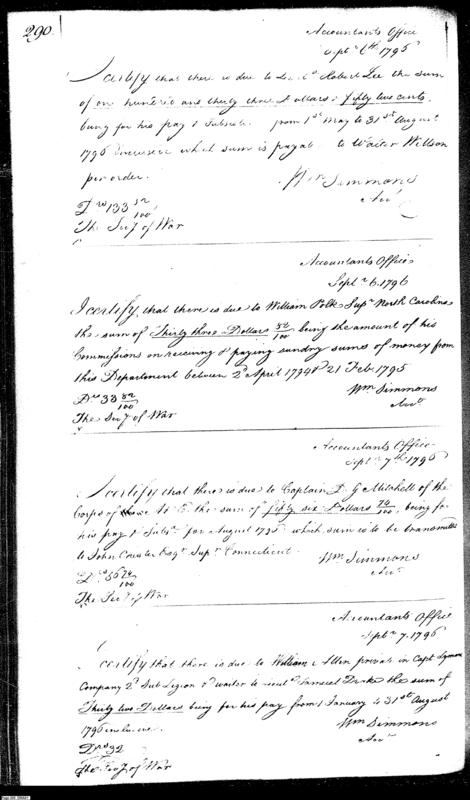 290.
Accountants Office
Sept.r 6th. 1796
I certify that there is due to Lieut.t Robert Lee the sum
of one hundred and thirty three Dollars & fifty two cents,
being for his pay & Subsist. from 1st May to 31st August
1796 inclusive which sum is payable to Walter Willson
per order.
Wm Simmons
Acct.
Drs 133 52/100
The Secy of War
Accountants Office
Sept.r 6. 1796
I certify, that there is due to William Polk Supr North Carolina
the sum of Thirty three Dollars 82/100 being the amount of his
Commissions on receiving & paying sundry sums of money from
this Department between 2d April 1794 & 21 Feb. 1795
Wm Simmons
Acct.
Drs 33 82/100
The Secy of War
Accountants Office
Sept.r 7th 1796
I certify that there is due to Captain D G Mitchell of the
Corps of & E the sum of fifty six Dollars 74/100, being for
his pay & Subs. for August 1796 which sum is to be transmitted
to John Chester Esqr. Supr. Connecticut.
Wm Simmons
Acct.
Drs 56 74/100
The Sec of War
Accountants Office
Sept.r 7. 1796
I certify that there is due to William Allen private in Capt Lymans
Company 2d Sub Legion & waiter to Lieut Samuel Drake the sum of
Thirty two Dollars being for his pay from 1 January to 31st August
1796 inclusive.
Wm Simmons
Acct.
Drs 32
The Secy of War